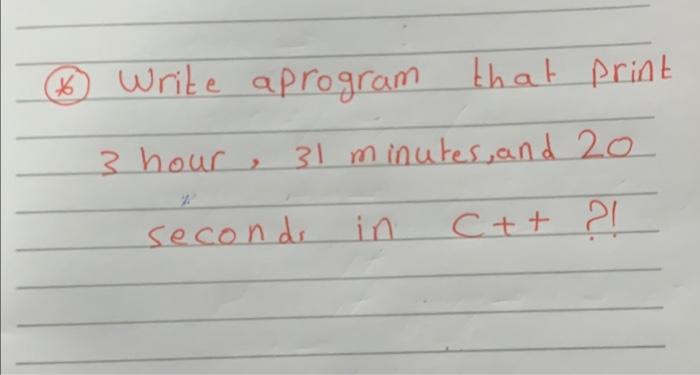 * Write aprogram that print
3 hour, 31 minutes, and 20
seconds in C++ ?!